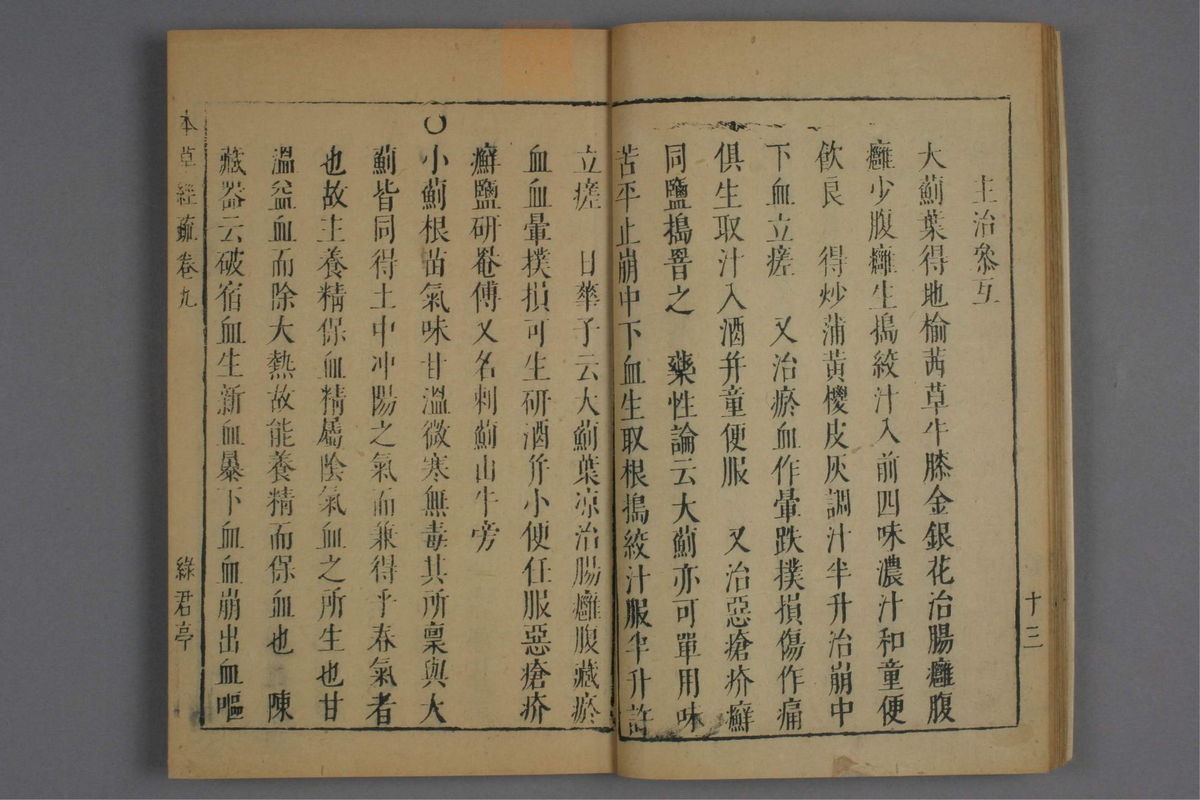 十三
主治參互
大薊葉得地榆茜草牛膝金銀花治腸癰腹
癰少腹癰生搗絞汁入前四味濃汁和童便
飲良　得炒蒲黃櫻皮灰調汁半升治崩中
下血立瘥　又治瘀血作暈跌撲損傷作痛
俱生取汁入酒并童便服　又治惡瘡疥癬
同鹽搗罯之　藥性論云大薊亦可單用味
苦平止崩中下血生取根搗絞汁服半升許
立瘥　日華子云大薊葉凉治腸癰腹藏瘀
血血暈撲損可生研酒并小便任服惡瘡疥
癬鹽研罨傅又名刺薊山牛旁
○小薊根苗氣味甘溫微寒無毒其所稟與大
薊皆同得土中冲陽之氣而兼得乎春氣者
也故主養精保血精屬陰氣血之所生也甘
溫益血而除大熱故能養精而保血也　陳
藏器云破宿血生新血暴下血血崩出血嘔
本草經疏卷九　綠君亭